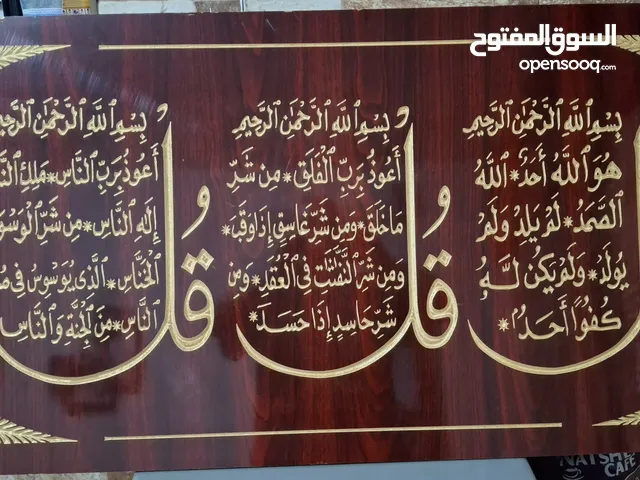 السوق المفتوح
opensooq.com
بسم ٱللَّه ٱلرَّحمٰن ٱلرَّحيم
قُل
هو ٱللَّه أحد * ٱللَّه
ٱلصَّمد * لم يلد ولم
يولد * ولم يكن لَّه
كفوًا أحد *
بسم ٱللَّه ٱلرَّحمٰن ٱلرَّحيم
قُل
أعوذ بربِّ ٱلفلق * من شرِّ
ما خلق * ومن شرِّ غاسق إذا وقب *
ومن شرِّ ٱلنَّفَّٰثٰت في ٱلعقد * ومن
شرِّ حاسد إذا حسد *
بسم ٱللَّه ٱلرَّحمٰن
قُل
أعوذ بربِّ ٱلنَّاس * ملك
إلٰه ٱلنَّاس * من شرِّ
ٱلخنَّاس * ٱلَّذي يوسوس في
ٱلنَّاس * من ٱلجنَّة وٱلنَّاس
NATSHE
CAFE